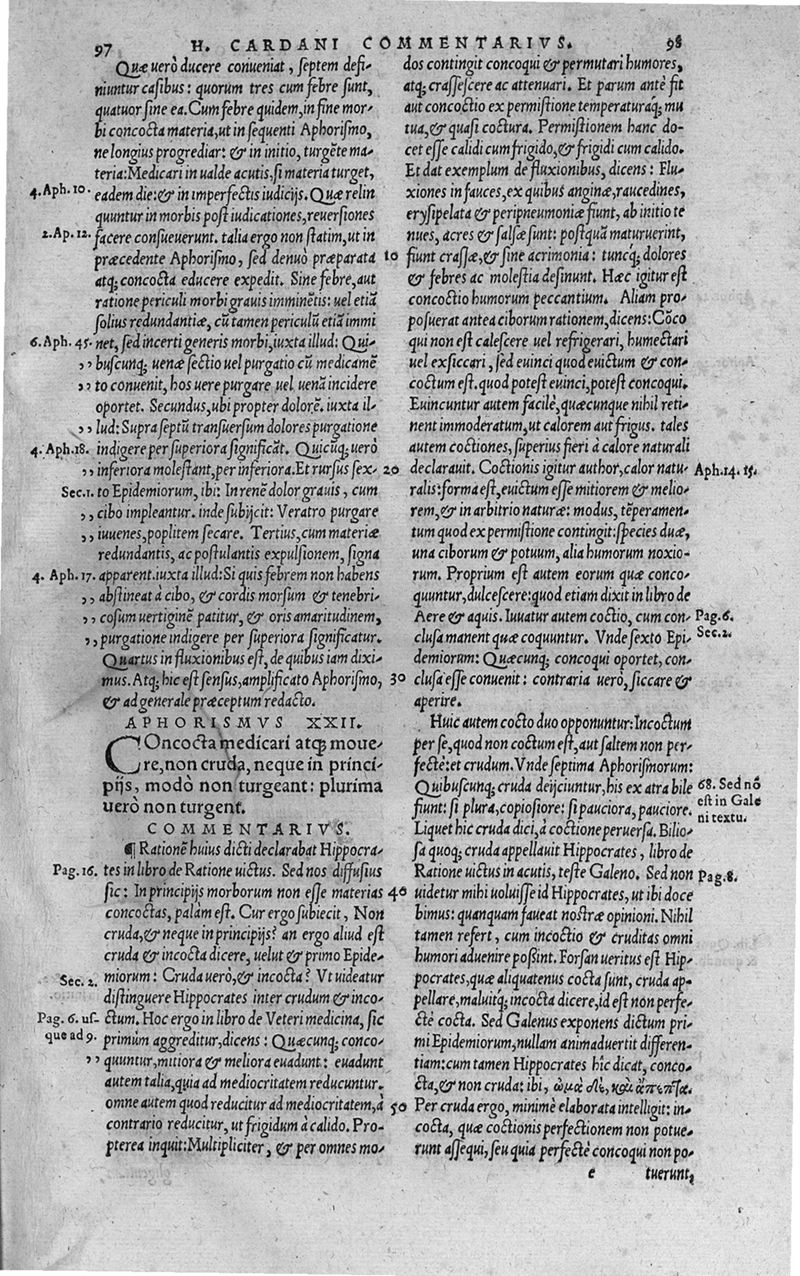 97 H. CARDANI COMMENTARIVS. 98
Quæ uerò ducere conueniat, septem defi-
niuntur casibus: quorum tres cum febre sunt,
quatuor sine ea. Cum febre quidem, in fine mor-
bi concocta materia, ut in sequenti Aphorismo,
ne longius progrediar: & in initio, turgẽte ma-
teria: Medicari in ualde acutis, si materia turget,
4. Aph. 10. eadem die: & in imperfectis iudicijs. Quæ relin
quuntur in morbis post iudicationes, reuersiones
2. Ap. 12. facere consueuerunt. talia ergo non statim, ut in
præcedente Aphorismo, sed denuò præparata 10
atq; concocta educere expedit. Sine febre, aut
ratione periculi morbi grauis imminẽtis: uel etiã
solius redundantiæ, cũ tamen periculũ etiã immi
6. Aph. 45. net, sed incerti generis morbi, iuxta illud: Qui-
,, buscunq; uenæ sectio uel purgatio cũ medicamẽ
,, to conuenit, hos uere purgare uel uenã incidere
oportet. Secundus, ubi propter dolorẽ. iuxta il-
,, lud: Supra septũ transuersum dolores purgatione
4. Aph. 18. indigere per superiora significãt. Quicũq; uerò
,, inferiora molestant, per inferiora. Et rursus sex- 20
Sec. 1. to Epidemiorum, ibi: In renẽ dolor grauis, cum
,, cibo impleantur. inde subijcit: Veratro purgare
,, iuuenes, poplitem secare. Tertius, cum materiæ
redundantis, ac postulantis expulsionem, signa
4. Aph. 17. apparent. iuxta illud: Si quis febrem non habens
,, abstineat à cibo, & cordis morsum & tenebri-
,, cosum uertiginẽ patitur, & oris amaritudinem,
,, purgatione indigere per superiora significatur.
Quartus in fluxionibus est, de quibus iam dixi-
mus. Atq; hic est sensus, amplificato Aphorismo, 30
& ad generale præceptum redacto.
APHORISMVS XXII.
COncocta medicari atq; moue-
re, non cruda, neque in princi-
pijs, modò non turgeant: plurima
uerò non turgent.
COMMENTARIVS.
¶ Rationẽ huius dicti declarabat Hippocra-
Pag. 16. tes in libro de Ratione uictus. Sed nos diffusius
sic: In principijs morborum non esse materias 40
concoctas, palàm est. Cur ergo subiecit, Non
cruda, & neque in principijs? an ergo aliud est
cruda & incocta dicere, uelut & primo Epide-
Sec. 2. miorum: Cruda uerò, & incocta? Vt uideatur
distinguere Hippocrates inter crudum & inco-
Pag. 6. us- ctum. Hoc ergo in libro de Veteri medicina, sic
que ad 9. primùm aggreditur, dicens: Quæcunq; conco-
,, quuntur, mitiora & meliora euadunt: euadunt
autem talia, quia ad mediocritatem reducuntur.
omne autem quod reducitur ad mediocritatem, à 50
contrario reducitur, ut frigidum à calido. Pro-
pterea inquit: Multipliciter, & per omnes mo-
dos contingit concoqui & permutari humores,
atq; crassescere ac attenuari. Et parum antè fit
aut concoctio ex permistione temperaturaq́; mu
tua, & quasi coctura. Permistionem hanc do-
cet esse calidi cum frigido, & frigidi cum calido.
Et dat exemplum de fluxionibus, dicens: Flu-
xiones in fauces, ex quibus anginæ, raucedines,
erysipelata & peripneumoniæ fiunt, ab initio te
nues, acres & salsæ sunt: postquã maturuerint,
fiunt crassæ, & sine acrimonia: tuncq́; dolores
& febres ac molestia desinunt. Hæc igitur est
concoctio humorum peccantium. Aliam pro-
posuerat antea ciborum rationem, dicens: Cõco
qui non est calescere uel refrigerari, humectari
uel exsiccari, sed euinci quod euictum & con-
coctum est. quod potest euinci, potest concoqui.
Euincuntur autem facilè, quæcunque nihil reti-
nent immoderatum, ut calorem aut frigus. tales
autem coctiones, superius fieri à calore naturali
declarauit. Coctionis igitur author, calor natu- Aph. 14. 15.
ralis: forma est, euictum esse mitiorem & melio-
rem, & in arbitrio naturæ: modus, tẽperamen-
tum quod ex permistione contingit: species duæ,
una ciborum & potuum, alia humorum noxio-
rum. Proprium est autem eorum quæ conco-
quuntur, dulcescere: quod etiam dixit in libro de
Aere & aquis. Iuuatur autem coctio, cum con- Pag. 6.
clusa manent quæ coquuntur. Vnde sexto Epi- Sec. 2.
demiorum: Quæcunq; concoqui oportet, con-
clusa esse conuenit: contraria uerò, siccare &
aperire.
Huic autem cocto duo opponuntur: Incoctum
per se, quod non coctum est, aut saltem non per-
fectè: et crudum. Vnde septima Aphorismorum:
Quibuscunq; cruda deijciuntur, his ex atra bile 68. Sed nõ
fiunt: si plura, copiosiore: si pauciora, pauciore. est in Gale
Liquet hic cruda dici, à coctione peruersa. Bilio- ni textu.
sa quoq; cruda appellauit Hippocrates, libro de
Ratione uictus in acutis, teste Galeno. Sed non Pag. 8.
uidetur mihi uoluisse id Hippocrates, ut ibi doce
bimus: quanquam faueat nostræ opinioni. Nihil
tamen refert, cum incoctio & cruditas omni
humori aduenire possint. Forsan ueritus est Hip-
pocrates, quæ aliquatenus cocta sunt, cruda ap-
pellare, maluitq́; incocta dicere, id est non perfe-
ctè cocta. Sed Galenus exponens dictum pri-
mi Epidemiorum, nullam animaduertit differen-
tiam: cum tamen Hippocrates hîc dicat, conco-
cta, & non cruda: ibi, ὠμὰ δὲ, καὶ ἄπεπτα.
Per cruda ergo, minimè elaborata intelligit: in-
cocta, quæ coctionis perfectionem non potue-
runt assequi, seu quia perfectè concoqui non po-
e tuerunt,